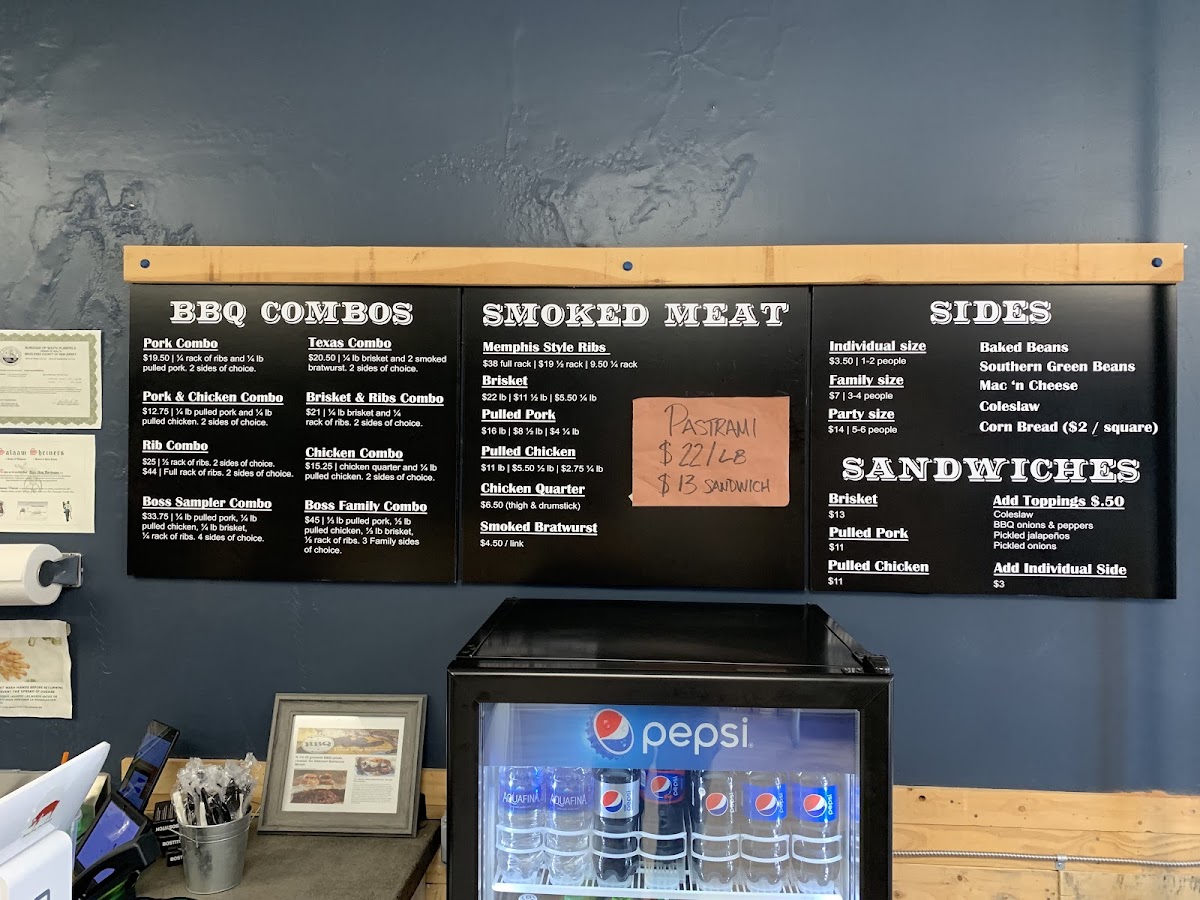 BBQ COMBOS
Pork Combo
$19.50 | ¼ rack of ribs and ¼ lb
pulled pork. 2 sides of choice.
Pork & Chicken Combo
$12.75 | ¼ lb pulled pork and ¼ lb
pulled chicken. 2 sides of choice.
Rib Combo
$25 | ½ rack of ribs. 2 sides of choice.
$44 | Full rack of ribs. 2 sides of choice.
Boss Sampler Combo
$33.75 | ¼ lb pulled pork, ¼ lb
pulled chicken, ¼ lb brisket,
¼ rack of ribs. 4 sides of choice.
Texas Combo
$20.50 | ¼ lb brisket and 2 smoked
bratwurst. 2 sides of choice.
Brisket & Ribs Combo
$21 | ¼ lb brisket and ¼
rack of ribs. 2 sides of choice.
Chicken Combo
$15.25 | chicken quarter and ¼ lb
pulled chicken. 2 sides of choice.
Boss Family Combo
$45 | ½ lb pulled pork, ½ lb
pulled chicken, ½ lb brisket,
½ rack of ribs. 3 Family sides
of choice.
SMOKED MEAT
Memphis Style Ribs
$38 full rack | $19 ½ rack | 9.50 ¼ rack
Brisket
$22 lb | $11 ½ lb | $5.50 ¼ lb
Pulled Pork
$16 lb | $8 ½ lb | $4 ¼ lb
Pulled Chicken
$11 lb | $5.50 ½ lb | $2.75 ¼ lb
Chicken Quarter
$6.50 (thigh & drumstick)
Smoked Bratwurst
$4.50 / link
PASTRAMI
$ 22/LB
$ 13 SANDWICH
SIDES
Individual size
$3.50 | 1-2 people
Family size
$7 | 3-4 people
Party size
$14 | 5-6 people
Baked Beans
Southern Green Beans
Mac ‘n Cheese
Coleslaw
Corn Bread ($2 / square)
SANDWICHES
Brisket
$13
Pulled Pork
$11
Pulled Chicken
$11
Add Toppings $.50
Coleslaw
BBQ onions & peppers
Pickled jalapeños
Pickled onions
Add Individual Side
$3
Salaam Shriners
pepsi
AQUAFINA
AQUAFINA
BOSTITCH